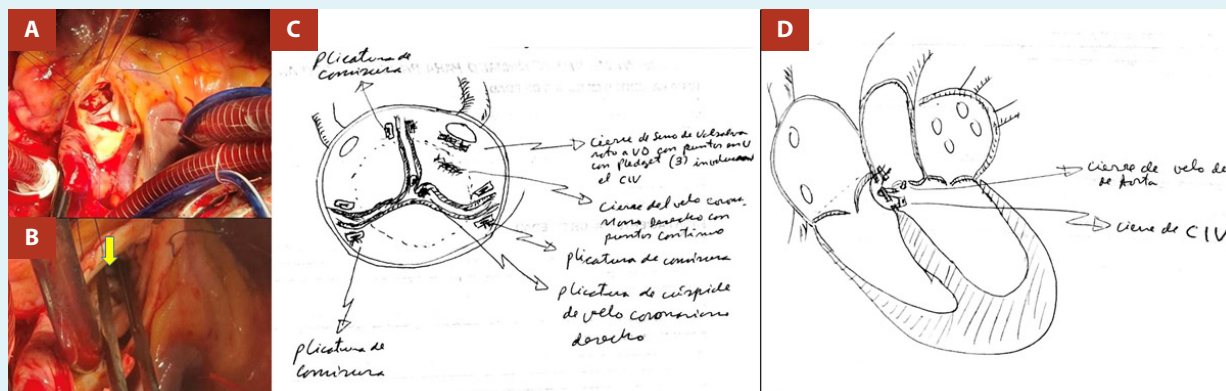 A
B
C
D
plicatura de
comisura
cierre de seno de valsalva
roto a VD con puntos en U
con Pledget (3) involucra
el CIV
cierre del velo coro-
derecho con
puntos continuo
plicatura de comisura
plicatura de cúspide
de velo coronariano
derecho
plicatura de
comisura
cierre de velo de
de Aorta
cierre de CIV